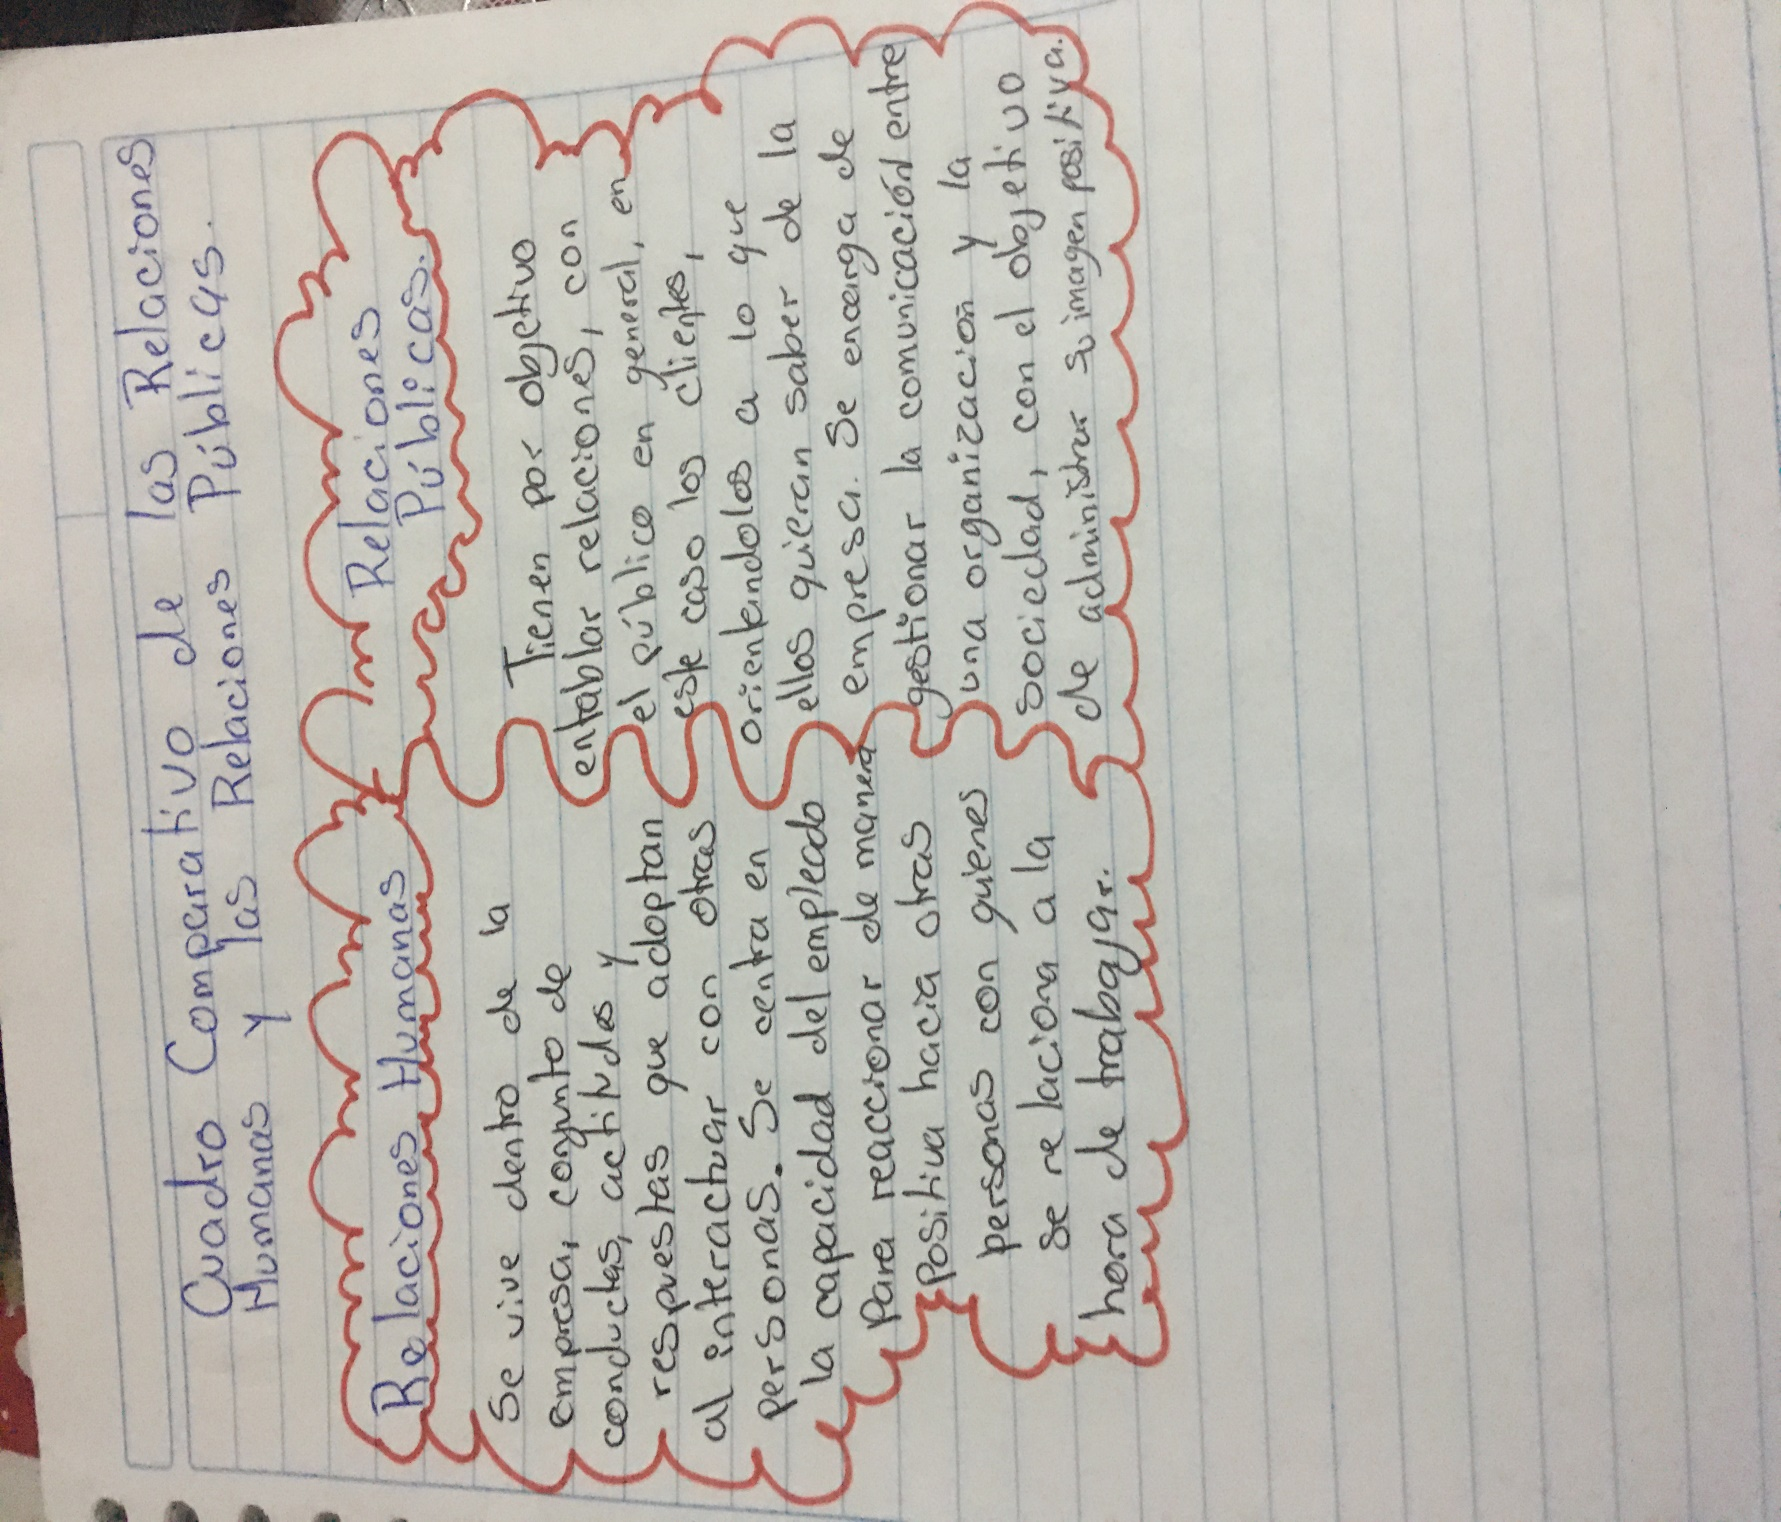 Cuadro Comparativo de las Relaciones
Humanas y las Relaciones Públicas.
Relaciones Humanas
Se vive dentro de la
empresa, conjunto de
conductas, actitudes y
respuestas que adoptan
al interactuar con otras
personas. Se centra en
la capacidad del empleado
Para reaccionar de manera
Positiva hacia otras
personas con quienes
se relaciona a la
hora de trabajar.
Relaciones
Públicas.
Tienen por objetivo
entablar relaciones, con
el público en general, en
este caso los clientes,
orientandolos a lo que
ellos quieran saber de la
empresa. Se encarga de
gestionar la comunicación entre
una organización y la
sociedad, con el objetivo
de administrar su imagen positiva.